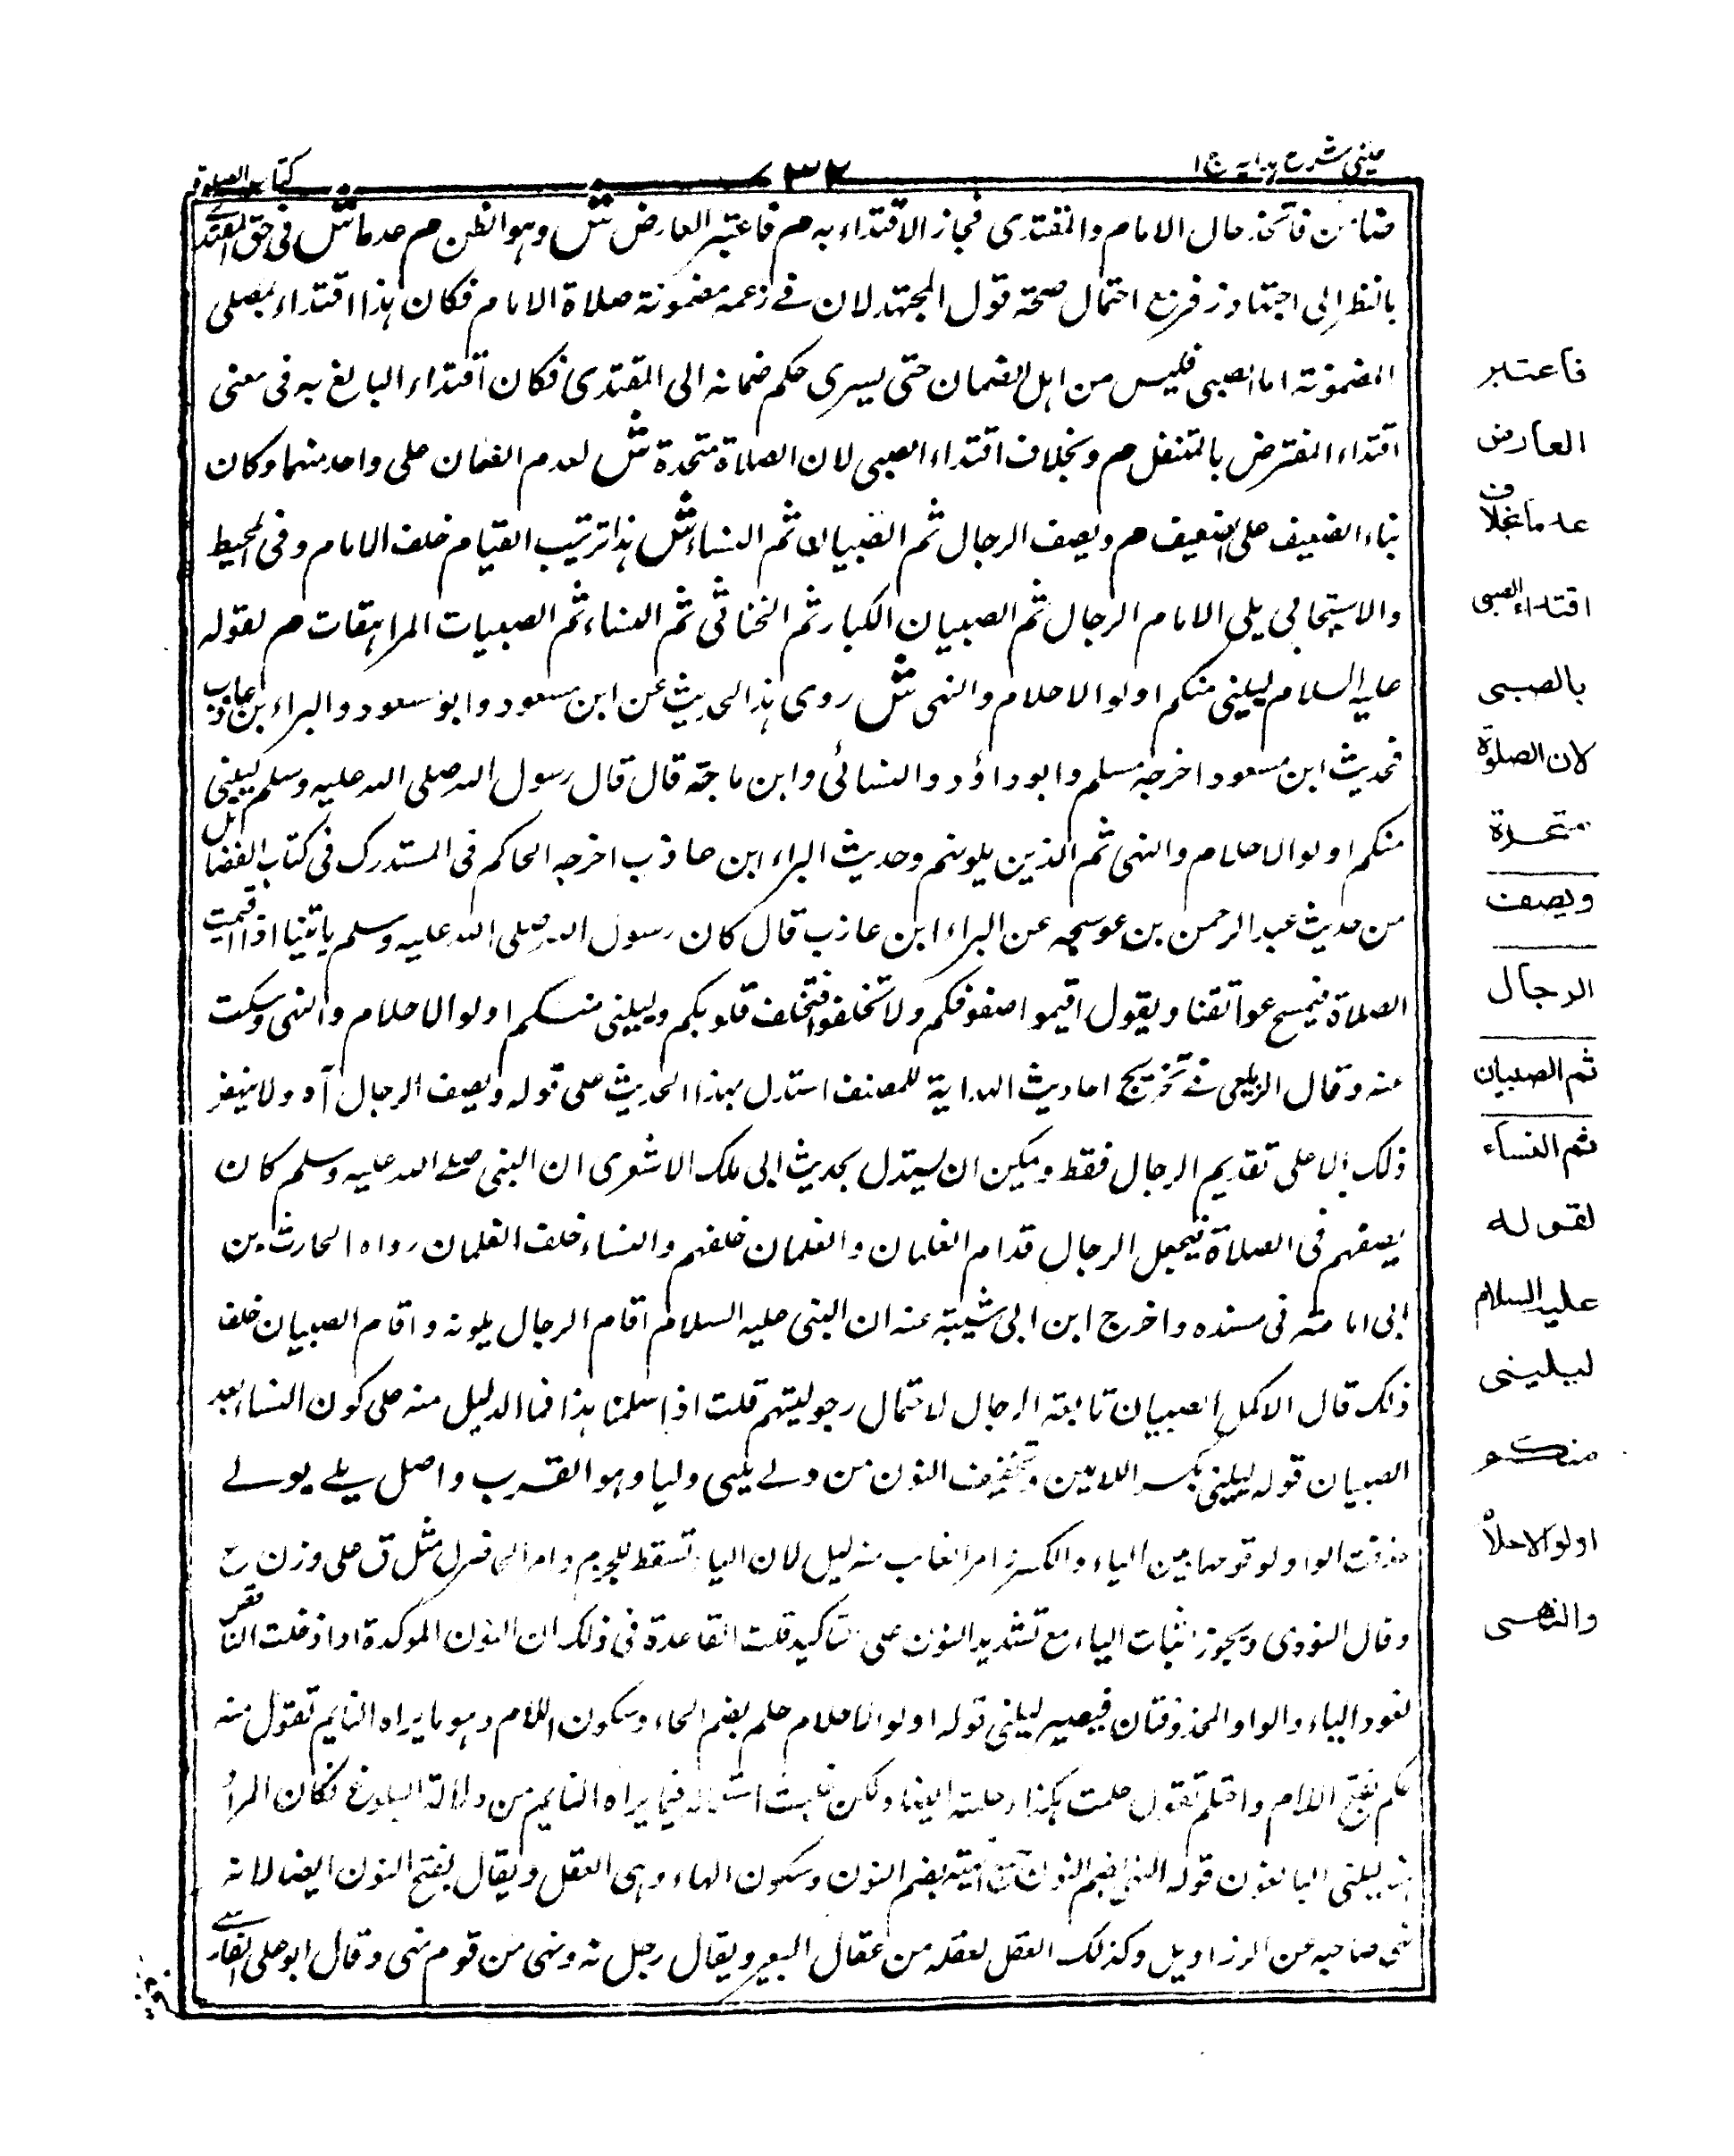 عینی شرح ہدایہ ج ١
٧٣٢
کتاب الصلوة
ضامن فاتحد حال الامام والمقتدی فجاز الاقتداء به م فاعتبر العارض ش وهو الظن م عدما ش فی حق المقتدی
بالنظر الی اجتهاد زفر مع احتمال صحة قول المجتهد لان فی زعمه مضمونة صلاة الامام فکان هذا اقتداء بمصلی
المضمونة اما الصبی فلیس من اهل الضمان حتی یسری حکم ضمانه الی المقتدی فکان اقتداء البالغ به فی معنی
اقتداء المفترض بالمتنفل م وبخلاف اقتداء الصبی لان الصلاة متحدة ش لعدم الضمان علی واحد منهما وکان
بناء الضعیف علی الضعیف م ویصف الرجال ثم الصبیان ثم النساء ش هذا ترتیب القیام خلف الامام وفی المحیط
والاسبیجابی یلی الامام الرجال ثم الصبیان الکبار ثم الخناثی ثم النساء ثم الصبیات المراهقات م لقوله
علیه السلام لیلینی منکم اولو الاحلام والنهی ش روی هذا الحدیث عن ابن مسعود وابو مسعود والبراء بن عازب
فحدیث ابن مسعود اخرجه مسلم وابو داؤد والنسائی وابن ماجة قال قال رسول الله صلی الله علیه وسلم لیلینی
منکم اولو الاحلام والنهی ثم الذین یلونهم وحدیث البراء ابن عازب اخرجه الحاکم فی المستدرک فی کتاب الفضائل
من حدیث عبد الرحمن بن عوسجه عن البراء ابن عازب قال کان رسول الله صلی الله علیه وسلم یاتینا اذا اقیمت
الصلاة فیمسح عواتقنا ویقول اقیموا صفوفکم ولا تختلفوا فتختلف قلوبکم ولیلینی منکم اولو الاحلام والنهی وسکت
عنه وقال الزیلعی فی تخریج احادیث الهدایة للمصنف استدل بهذا الحدیث علی قوله ویصف الرجال آه ولا ینهض
ذلک الا علی تقدیم الرجال فقط ویمکن ان یستدل بحدیث ابی ملک الاشعری ان النبی صلی الله علیه وسلم کان
یصفهم فی الصلاة فیجعل الرجال قدام الغلمان والغلمان خلفهم والنساء خلف الغلمان رواه الحارث بن
ابی امامة فی مسنده واخرج ابن ابی شیبة عنه ان النبی علیه السلام اقام الرجال یلونه واقام الصبیان خلف
ذلک قال الاکمل الصبیان تابعة الرجال لاحتمال رجولیتهم قلت اذا سلمنا هذا فما الدلیل منه علی کون النساء بعد
الصبیان قوله لیلینی بکسر اللامین وتخفیف النون من ولی یلی ولیا وهو القرب واصل یلی یولی
حذفت الواو لوقوعها بین الیاء والکسرة امر الغائب منه لیل لان الیاء تسقط للجزم وامر الحاضر ل مثل ق علی وزن ع
وقال النووی ویجوز اثبات الیاء مع تشدید النون علی التاکید قلت القاعدة فی ذلک ان النون الموکدة اذا دخلت الناقص
تعود الیاء والواو المحذوفتان فیصیر لیلینی قوله اولو الاحلام حلم بضم الحاء وسکون اللام وهو ما یراه النایم تقول منه
حلم بفتح اللام واحتلم تقول حلمت بکذا وحلمته ایضا ولکن غلبت استعماله فیما یراه النایم من دلالة البلوغ فکان المراد
منه لیلینی البالغون قوله النهی بضم النون جمع نهیة بضم النون وسکون الهاء وهی العقل ویقال بفتح النون ایضا لانه
نهی صاحبه عن الرذاویل وکذلک العقل لعقله من عقال البعیر ویقال رجل نه ونهی من قوم نهی وقال ابو علی الفارسی
فاعتبر
العارض
عدما بخلاف
اقتداء الصبی
بالصبی
لان الصلوة
متحدة
ویصف
الرجال
ثم الصبیان
ثم النساء
لقوله
علیه السلام
لیلینی
منکم
اولو الاحلام
والنهی